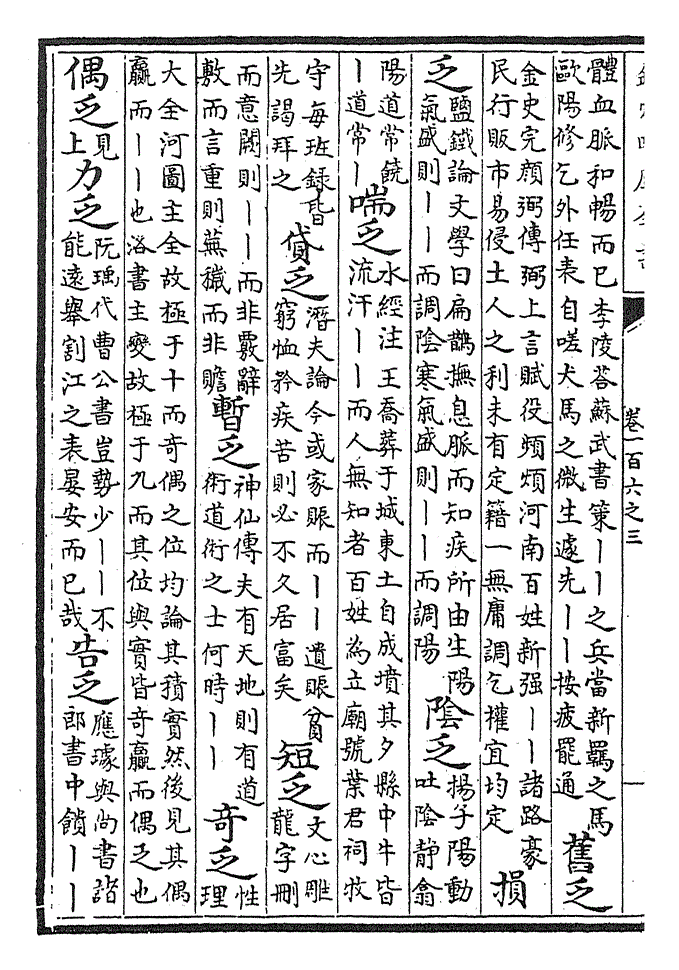 卷一百六之三
體血脈和暢而已李陵荅蘇武書策丨丨之兵當新羈之馬
歐陽修乞外任表自嗟犬馬之微生遽先丨丨按疲罷通
舊乏
金史完顏弼傳弼上言賦役頻煩河南百姓新强丨丨諸路豪
民行販市易侵土人之利未有定籍一無庸調乞權宜均定
損
乏
鹽鐵論文學曰扁鵲撫息脈而知疾所由生陽
氣盛則丨丨而調陰寒氣盛則丨丨而調陽
陰乏
揚子陽動
吐陰静翕
陽道常饒
丨道常丨
喘乏
水經注王喬葬于城東土自成墳其夕縣中牛皆
流汗丨丨而人無知者百姓為立廟號葉君祠牧
守每班録皆
先謁拜之
貸乏
潛夫論今或家賑而丨丨遺賑貧
窮恤矜疾苦則必不久居富矣
短乏
文心雕
龍字刪
而意闕則丨丨而非覈辭
敷而言重則蕪穢而非贍
暫乏
神仙傳夫有天地則有道
術道術之士何時丨丨
奇乏
性
理
大全河圖主全故極于十而奇偶之位均論其積實然後見其偶
贏而丨丨也洛書主變故極于九而其位與實皆奇贏而偶乏也
偶乏
見
上
力乏
阮瑀代曹公書豈勢少丨丨不
能遠舉割江之表晏安而已哉
告乏
應璩與尚書諸
郎書中饋丨丨